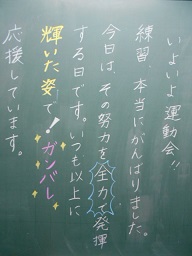 いよいよ運動会!!
練習、本当にがんばりました。
今日は、その努力を全力で発揮
する日です。いつも以上に
輝いた姿で!ガンバレ
応援しています。